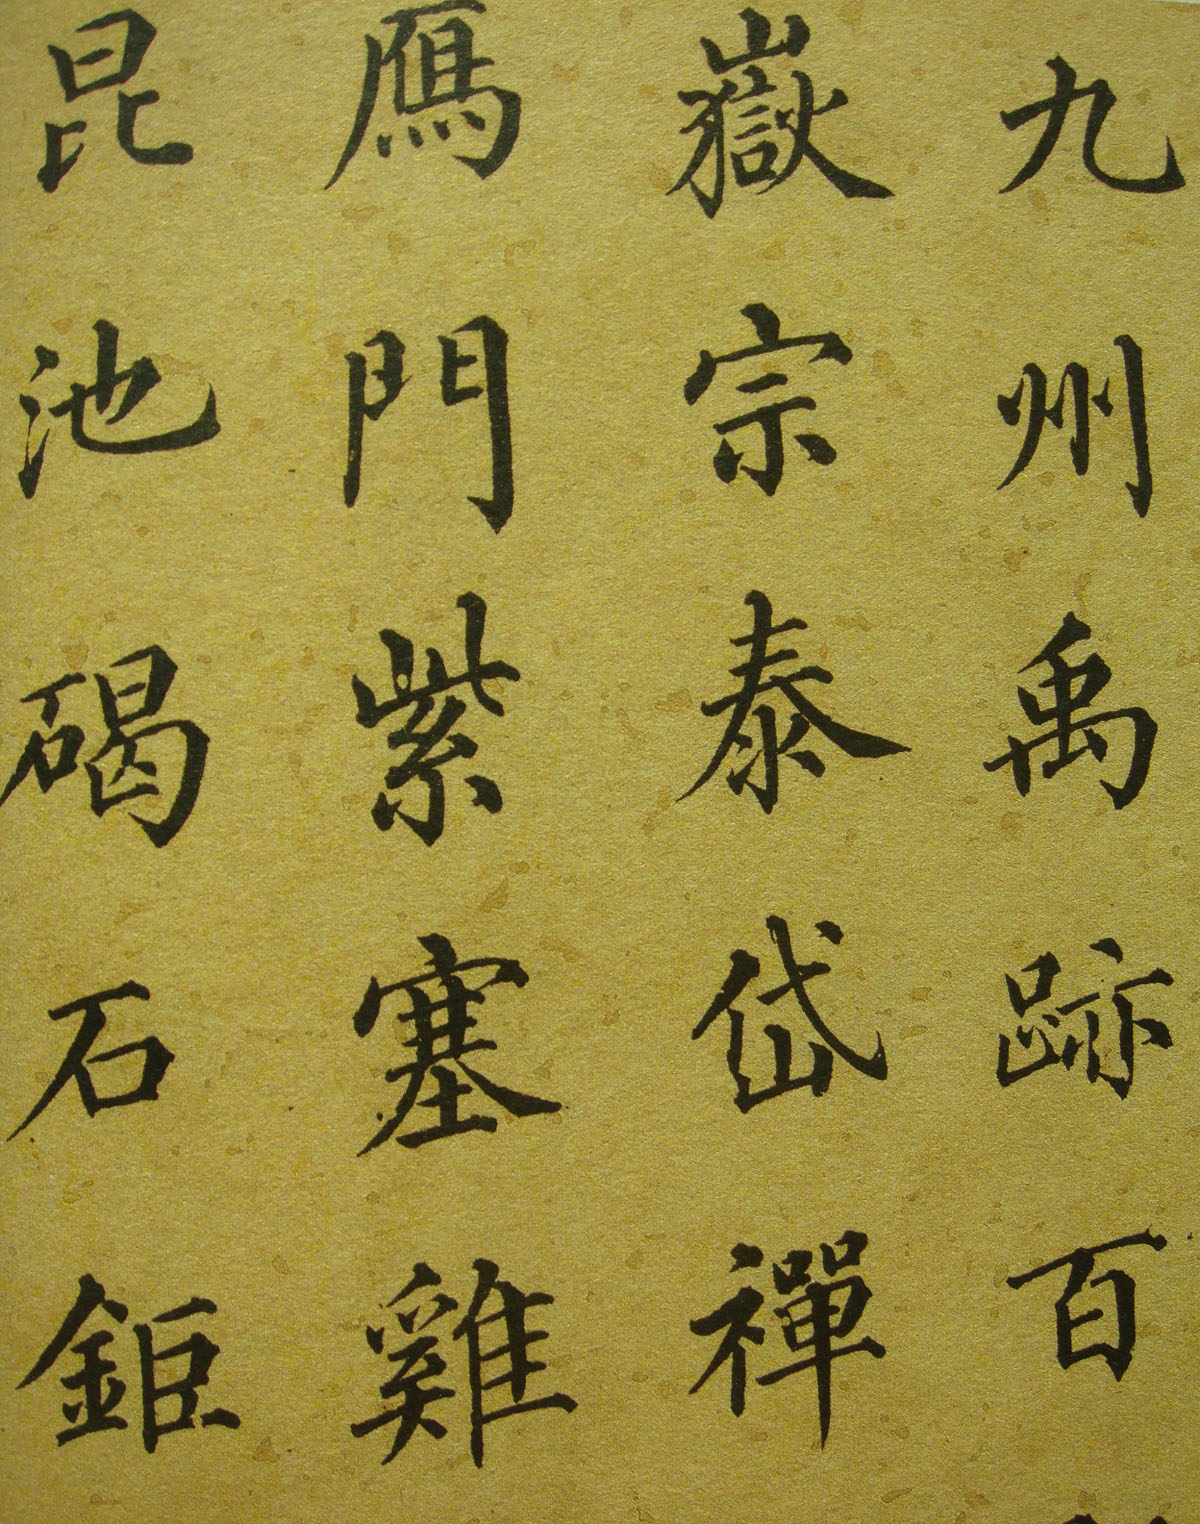 九州禹跡百
嶽宗泰岱禪
鴈門紫塞雞
昆池碣石鉅